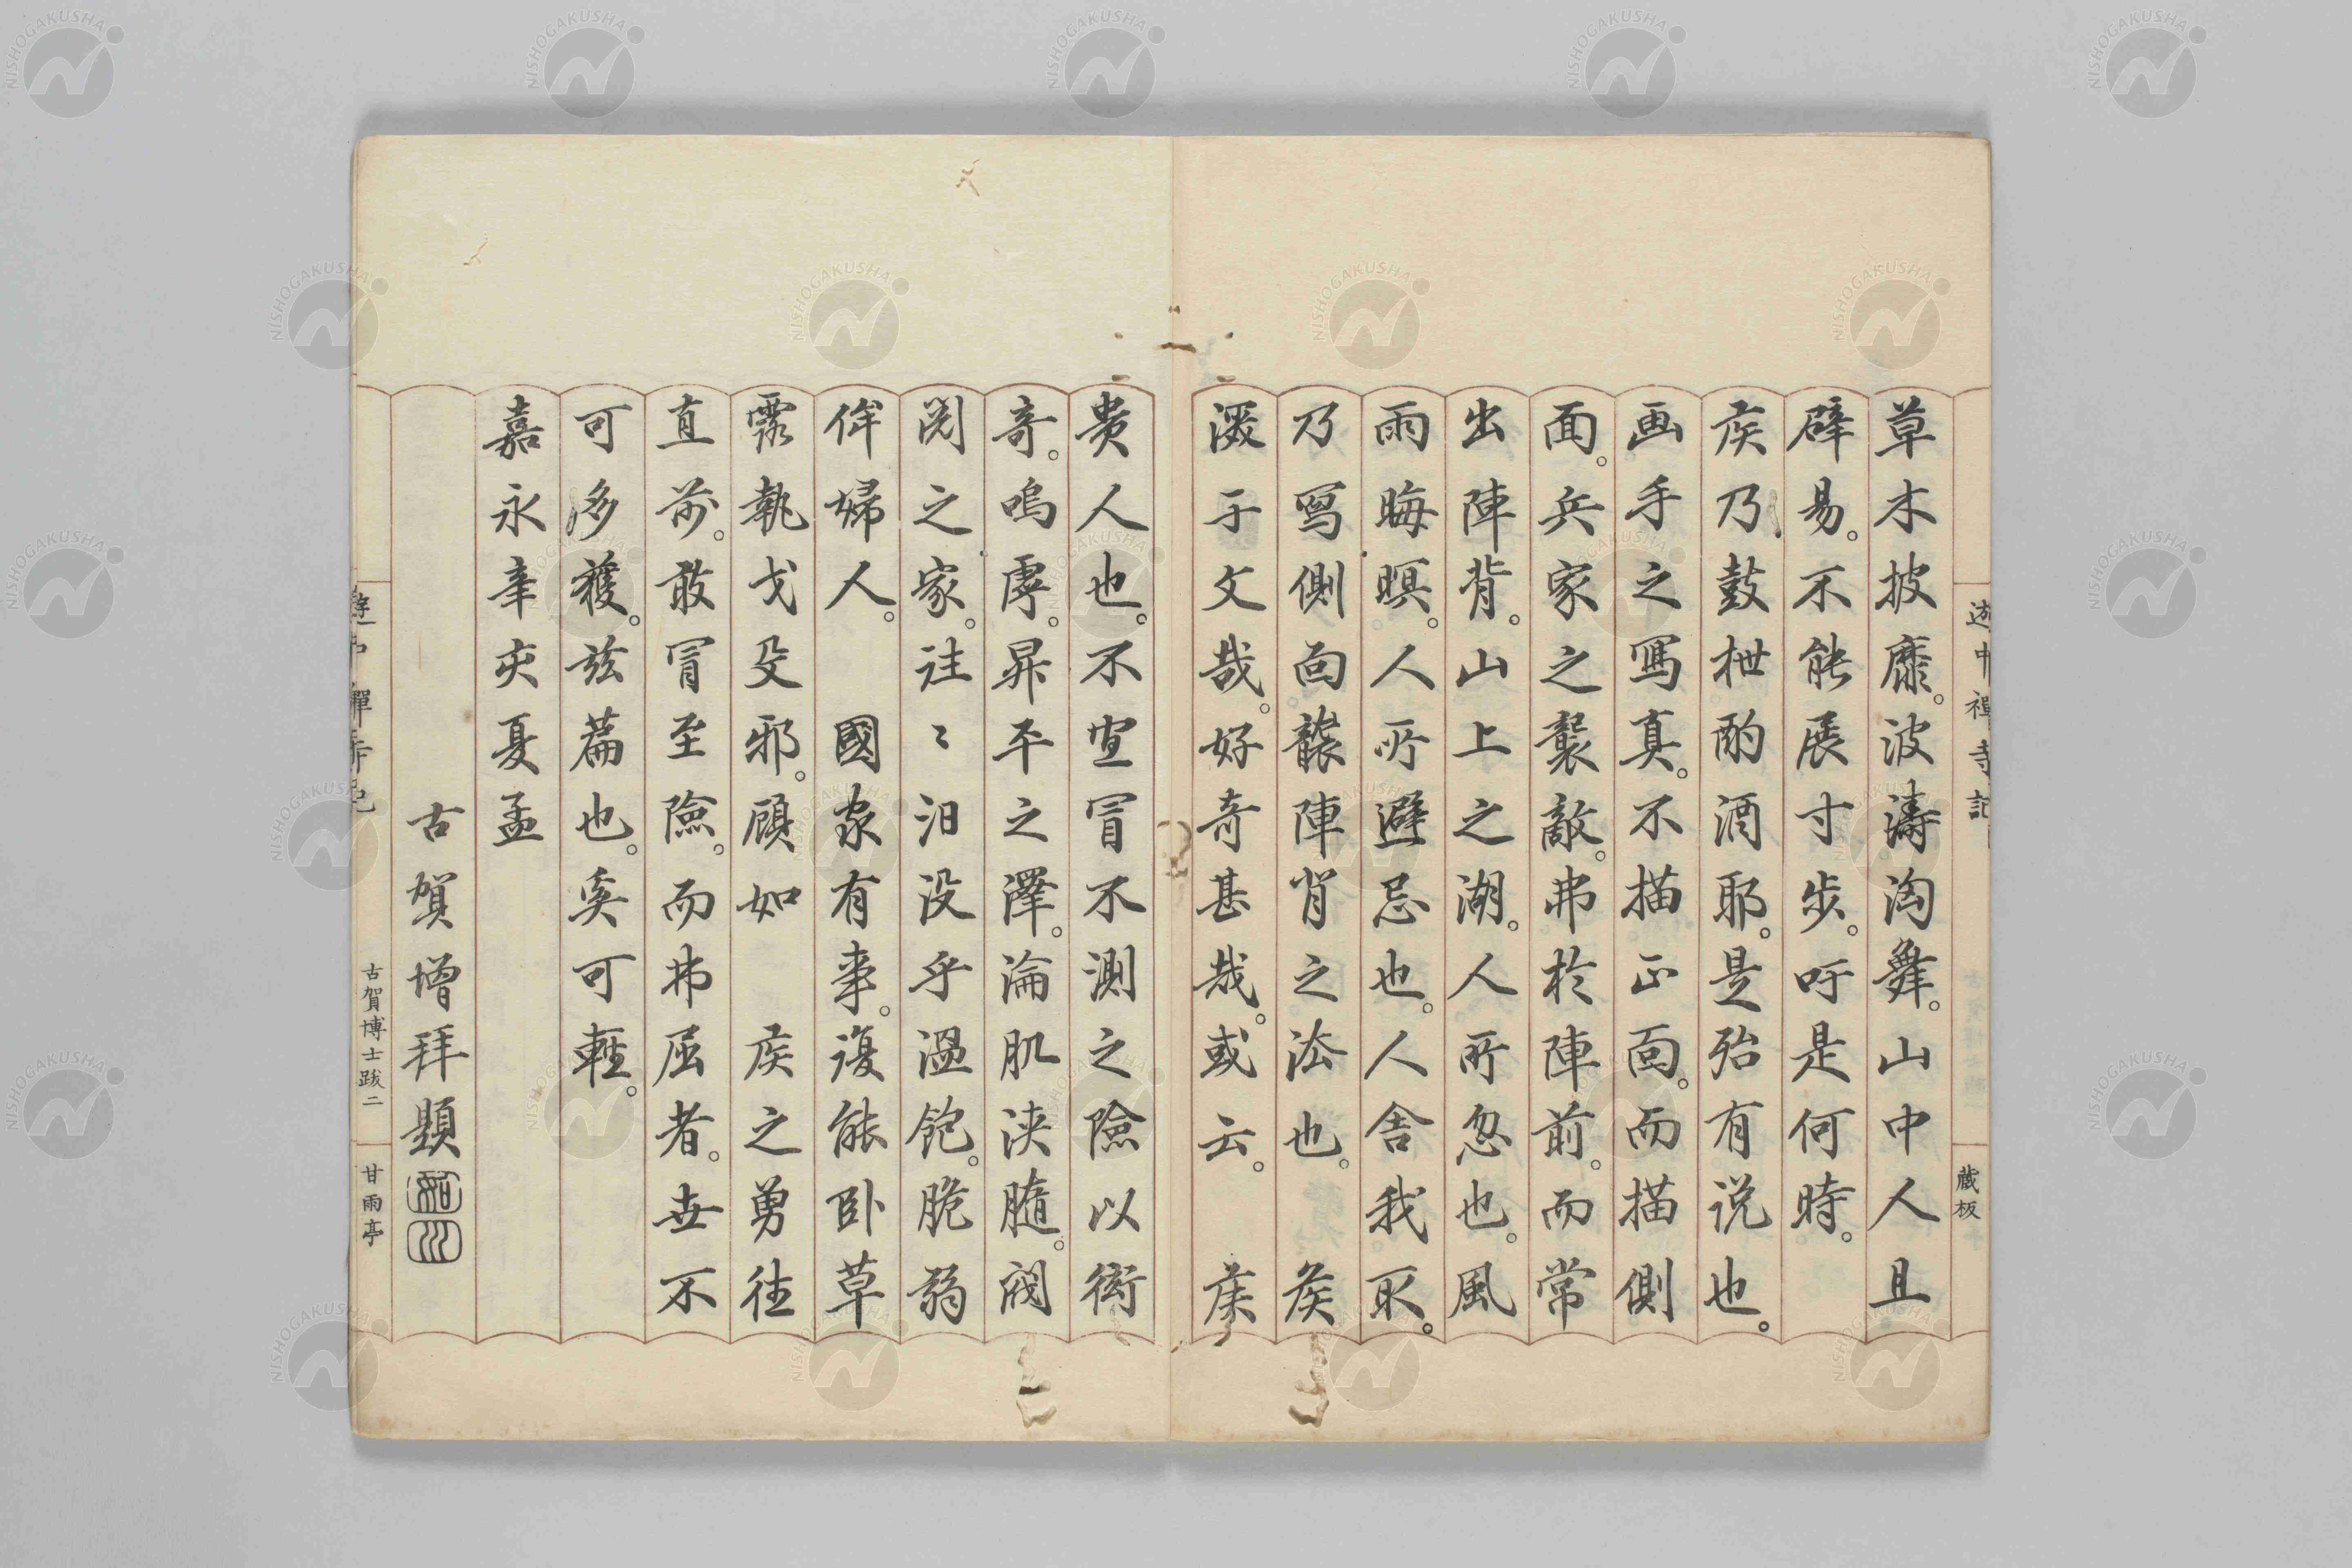 遊中禪寺記
藏板
草木披靡。波濤洶舞。山中人且
辟易。不能展寸步。吁是何時。
矦乃鼓枻酌酒耶。是殆有説也。
画手之寫真。不描正面。而描側
面。兵家之襲敵。弗於陣前。而常
出陣背。山上之湖。人所忽也。風
雨晦暝。人所避忌也。人舎我取。
乃寫側面襲陣背之法也。　矦
漫于文哉。好奇甚哉。或云。　矦
貴人也。不宜冒不測之險以衒
奇。嗚虖。昇平之澤。淪肌浹髓。閥
閲之家。往〻汩没乎温飽。脆弱
侔婦人。　國家有事。復能卧草
露執戈殳邪。顧如　矦之勇往
直前。敢冒至險。而弗屈者。世不
可多獲。玆篇也。奚可輕。
嘉永辛亥夏孟
古賀增拜題
遊中禪寺記
古賀博士跋二
甘雨亭
NISHOGAKUSHA